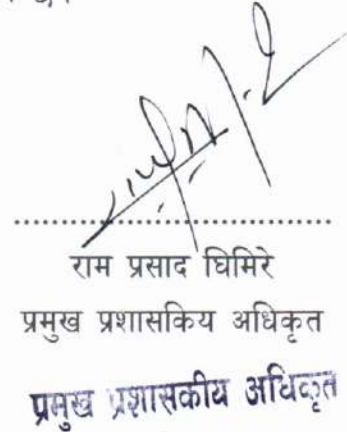 राम प्रसाद घिमिरे
प्रमुख प्रशासकिय अधिकृत
प्रमुख प्रशासकीय अधिकृत